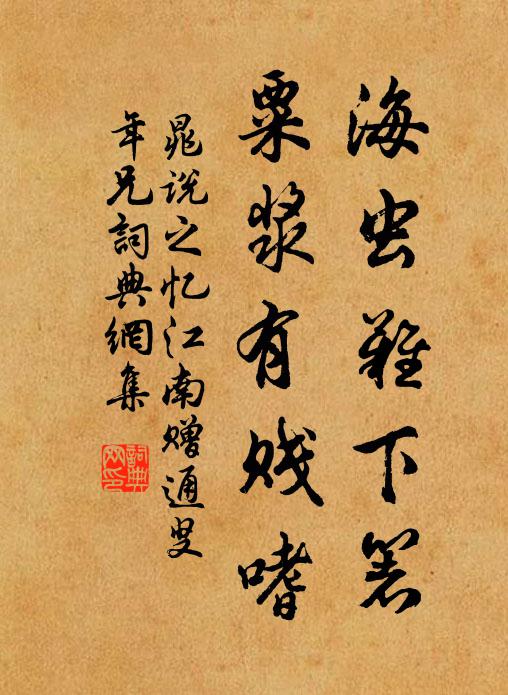 海虫难下箸
粟浆有贱嗜
晁说之忆江南赠通叟
年兄詞典網集
詞典网印